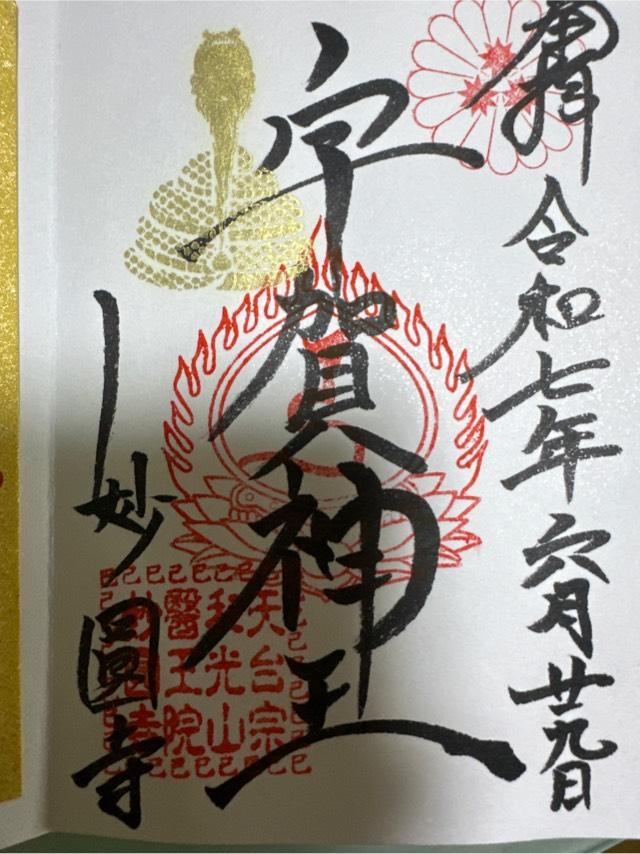 奉拝
令和七年六月廿九日
宇賀神王
妙圓寺
天台宗
和光山
醫王院
妙圓寺